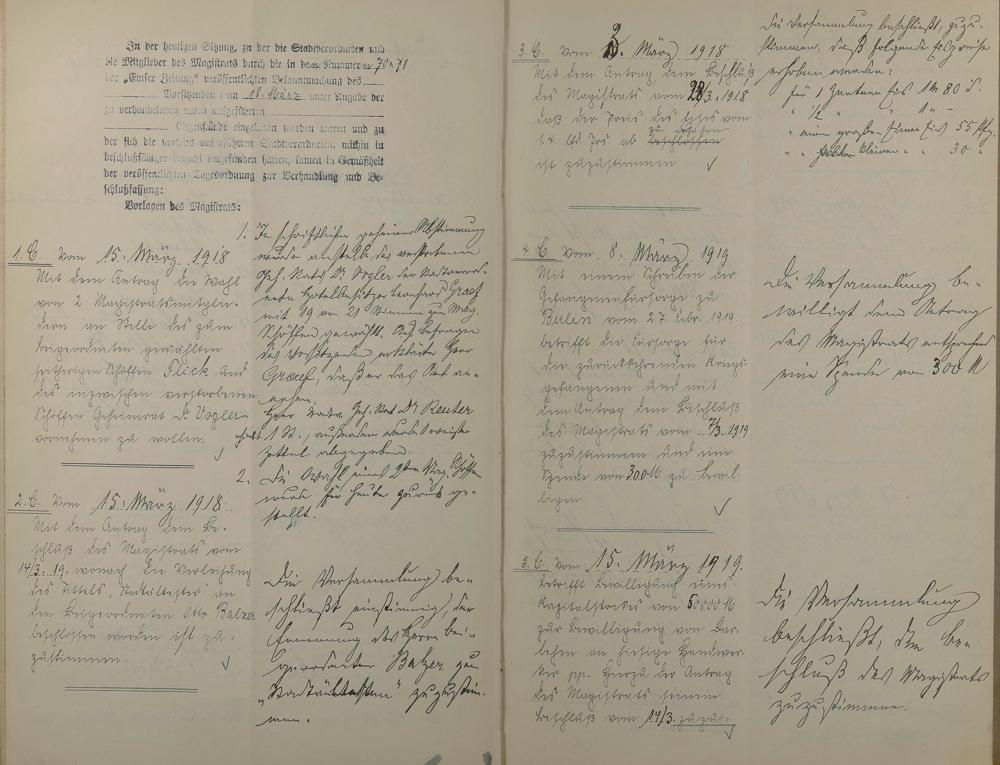 In der heutigen Sitzung, zu der die Stadtverordneten und
die Mitglieder des Magistrats durch die in den Nummern 70 u 71
der „Emser Zeitung" veröffentlichten Bekanntmachung des
Vorsitzenden vom 18. März unter Angabe der
zu verhandelnden unten aufgeführten
Gegenstände eingeladen worden waren und zu
der sich die vorseits aufgeführten Stadtverordneten, mithin in
beschlußfähiger Anzahl eingefunden hatten, kamen in Gemäßheit
der veröffentlichten Tagesordnung zur Verhandlung und Be-
schlußfassung:
Vorlagen des Magistrats:
1. C. vom 15. März 1918
Mit dem Antrag die Wahl
von 2 Magistratsmitglie-
dern an Stelle des zum
Beigeordneten gewählten
seitherigen Schöffen Flick und
des inzwischen verstorbenen
Schöffen Geheimrat Dr. Vogler
vornehmen zu wollen.
1. In schriftlicher geheimer Abstimmung
wurde anstelle des verstorbenen
Geh. Rats Dr Vogler der Stadtverord-
nete Hotelbesitzer Leonhard Graef
mit 19 von 21 Stimmen zum Mag.
Schöffen gewählt. Auf Befragen
des Vorsitzenden erklärte Herr
Graef, daß er das Amt an-
nehme.
Herr Geh. Rat Dr Reuter
erhielt 1 St., außerdem wurde 1 weißer
Zettel abgegeben.
2. Die Wahl eines 2ten Mag. Schöffen
wurde für heute zurück ge-
stellt.
2. C. vom 15. März 1918.
Mit dem Antrag dem Be-
schluß des Magistrats vom
14/3. 19. wonach die Verleihung
des Titels, Stadtältester an
den Beigeordneten Otto Balzer
beschlossen worden ist zu-
zustimmen.
Die Versammlung be-
schließt einstimmig, der
Ernennung des Herrn Bei-
geordneten Balzer zum
„Stadtältesten" zuzustim-
men.
3. C. vom 2. März 1918
Mit dem Antrag dem Beschluß
des Magistrats vom 28/3. 1918
daß der Preis des Eises vom
1.4. lfd. Jrs. ab
ist zuzustimmen
Die Versammlung beschließt, zuzu-
stimmen, daß folgende Eispreise
erhoben werden:
für 1 Zentner Eis 1 M 80 Pf.
" 1/2 " " 1 " -
" einen großen Eimer Eis 55 Pfg.
" " kleinen " " 30 "
4. C. vom 8. März 1919
Mit einem Schreiben der
Gefangenenfürsorge zu
Berlin vom 27 Febr. 1919.
betrifft die Fürsorge für
die zurückkehrenden Kriegs-
gefangenen und mit
dem Antrag dem Beschluß
des Magistrats vom 7/3. 1919
zuzustimmen und eine
Spende von 300 M zu bewil-
ligen.
Die Versammlung be-
willigt dem Antrag
des Magistrats entsprechend
eine Spende von 300 M
5. C. vom 15. März 1919.
betrifft Bewilligung eines
Kapitalstockes von 50000 M
zur Bewilligung von Dar-
lehen an hiesige Handwer-
ker pp. Hierzu der Antrag
des Magistrats seinem
Beschluß vom 14/3. zuzu-
Die Versammlung
beschließt, dem Be-
schluß des Magistrats
zuzustimmen.